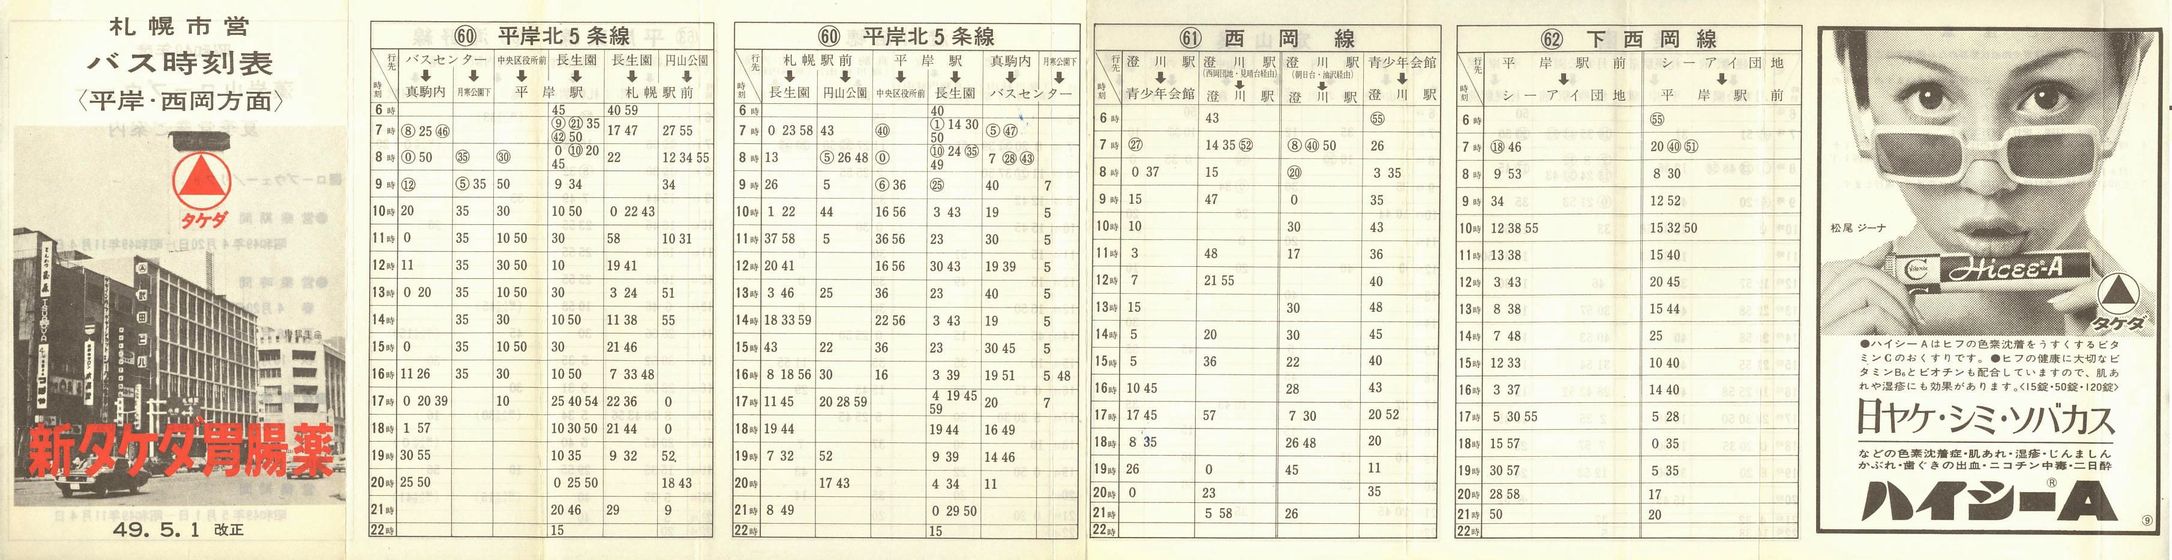 札幌市営
バス時刻表
〈平岸・西岡方面〉
タケダ
新タケダ胃腸薬
49. 5. 1 改正
⑥⓪ 平岸北5条線
行先 時刻 バスセンター➡真駒内 月寒公園下 中央区役所前 長生園➡平岸駅 長生園 円山公園➡札幌駅前
6時 45 40 59
7時 ⑧ 25 ㊻ ⑨ ㉑ 35 ㊷ 50 17 47 27 55
8時 ⓪ 50 ㉟ ㉚ 0 ⑩ 20 45 22 12 34 55
9時 ⑫ ⑤ 35 50 9 34 34
10時 20 35 30 10 50 0 22 43
11時 0 35 10 50 30 58 10 31
12時 11 35 30 50 10 19 41
13時 0 20 35 10 50 30 3 24 51
14時 35 30 10 50 11 38 55
15時 0 35 10 50 30 21 46
16時 11 26 35 30 10 50 7 33 48
17時 0 20 39 10 25 40 54 22 36 0
18時 1 57 10 30 50 21 44 0
19時 30 55 10 35 9 32 52
20時 25 50 0 25 50 18 43
21時 20 46 29 9
22時 15
⑥⓪ 平岸北5条線
行先 時刻 札幌駅前➡長生園 円山公園 平岸駅➡中央区役所前 長生園 真駒内 月寒公園下➡バスセンター
6時 40
7時 0 23 58 43 ㊵ ① 14 30 50 ⑤ ㊼
8時 13 ⑤ 26 48 ⓪ ⑩ 24 ㉟ 49 7 ㉘ ㊸
9時 26 5 ⑥ 36 ㉕ 40 7
10時 1 22 44 16 56 3 43 19 5
11時 37 58 5 36 56 23 30 5
12時 20 41 16 56 30 43 19 39 5
13時 3 46 25 36 23 40 5
14時 18 33 59 22 56 3 43 19 5
15時 43 22 36 23 30 45 5
16時 8 18 56 30 16 3 39 19 51 5 48
17時 11 45 20 28 59 4 19 45 59 20 7
18時 19 44 19 44 16 49
19時 7 32 52 9 39 14 46
20時 17 43 4 34 11
21時 8 49 0 29 50
22時 15
⑥① 西岡線
行先 時刻 澄川駅➡青少年会館 澄川駅(西岡団地・見晴台経由)➡澄川駅 澄川駅(朝日台・池沢経由)➡澄川駅 青少年会館➡澄川駅
6時 43 ㊺
7時 ㉗ 14 35 ㊾ ⑧ ㊵ 50 26
8時 0 37 15 ⑳ 3 35
9時 15 47 0 35
10時 10 30 43
11時 3 48 17 36
12時 7 21 55 40
13時 15 30 48
14時 5 20 30 45
15時 5 36 22 40
16時 10 45 28 43
17時 17 45 57 7 30 20 52
18時 8 35 26 48 20
19時 26 0 45 11
20時 0 23 35
21時 5 58 26
22時
⑥② 下西岡線
行先 時刻 平岸駅前➡シーアイ団地 シーアイ団地➡平岸駅前
6時 55
7時 ⑱ 46 20 ㊵ 51
8時 9 53 8 30
9時 34 12 52
10時 12 38 55 15 32 50
11時 13 38 15 40
12時 3 43 20 45
13時 8 38 15 44
14時 7 48 25
15時 12 33 10 40
16時 3 37 14 40
17時 5 30 55 5 28
18時 15 57 0 35
19時 30 57 5 35
20時 28 58 17
21時 50 20
22時
松尾 ジーナ
Hicee-A
タケダ
●ハイシーAはヒフの色素沈着をうすくするビタ
ミンCのおくすりです。●ヒフの健康に大切なビ
タミンB₆とビオチンも配合していますので、肌あ
れや湿疹にも効果があります。〈15錠・50錠・120錠〉
日ヤケ・シミ・ソバカス
などの色素沈着症・肌あれ・湿疹・じんましん
かぶれ・歯ぐきの出血・ニコチン中毒・二日酔
ハイシーA®
⑨